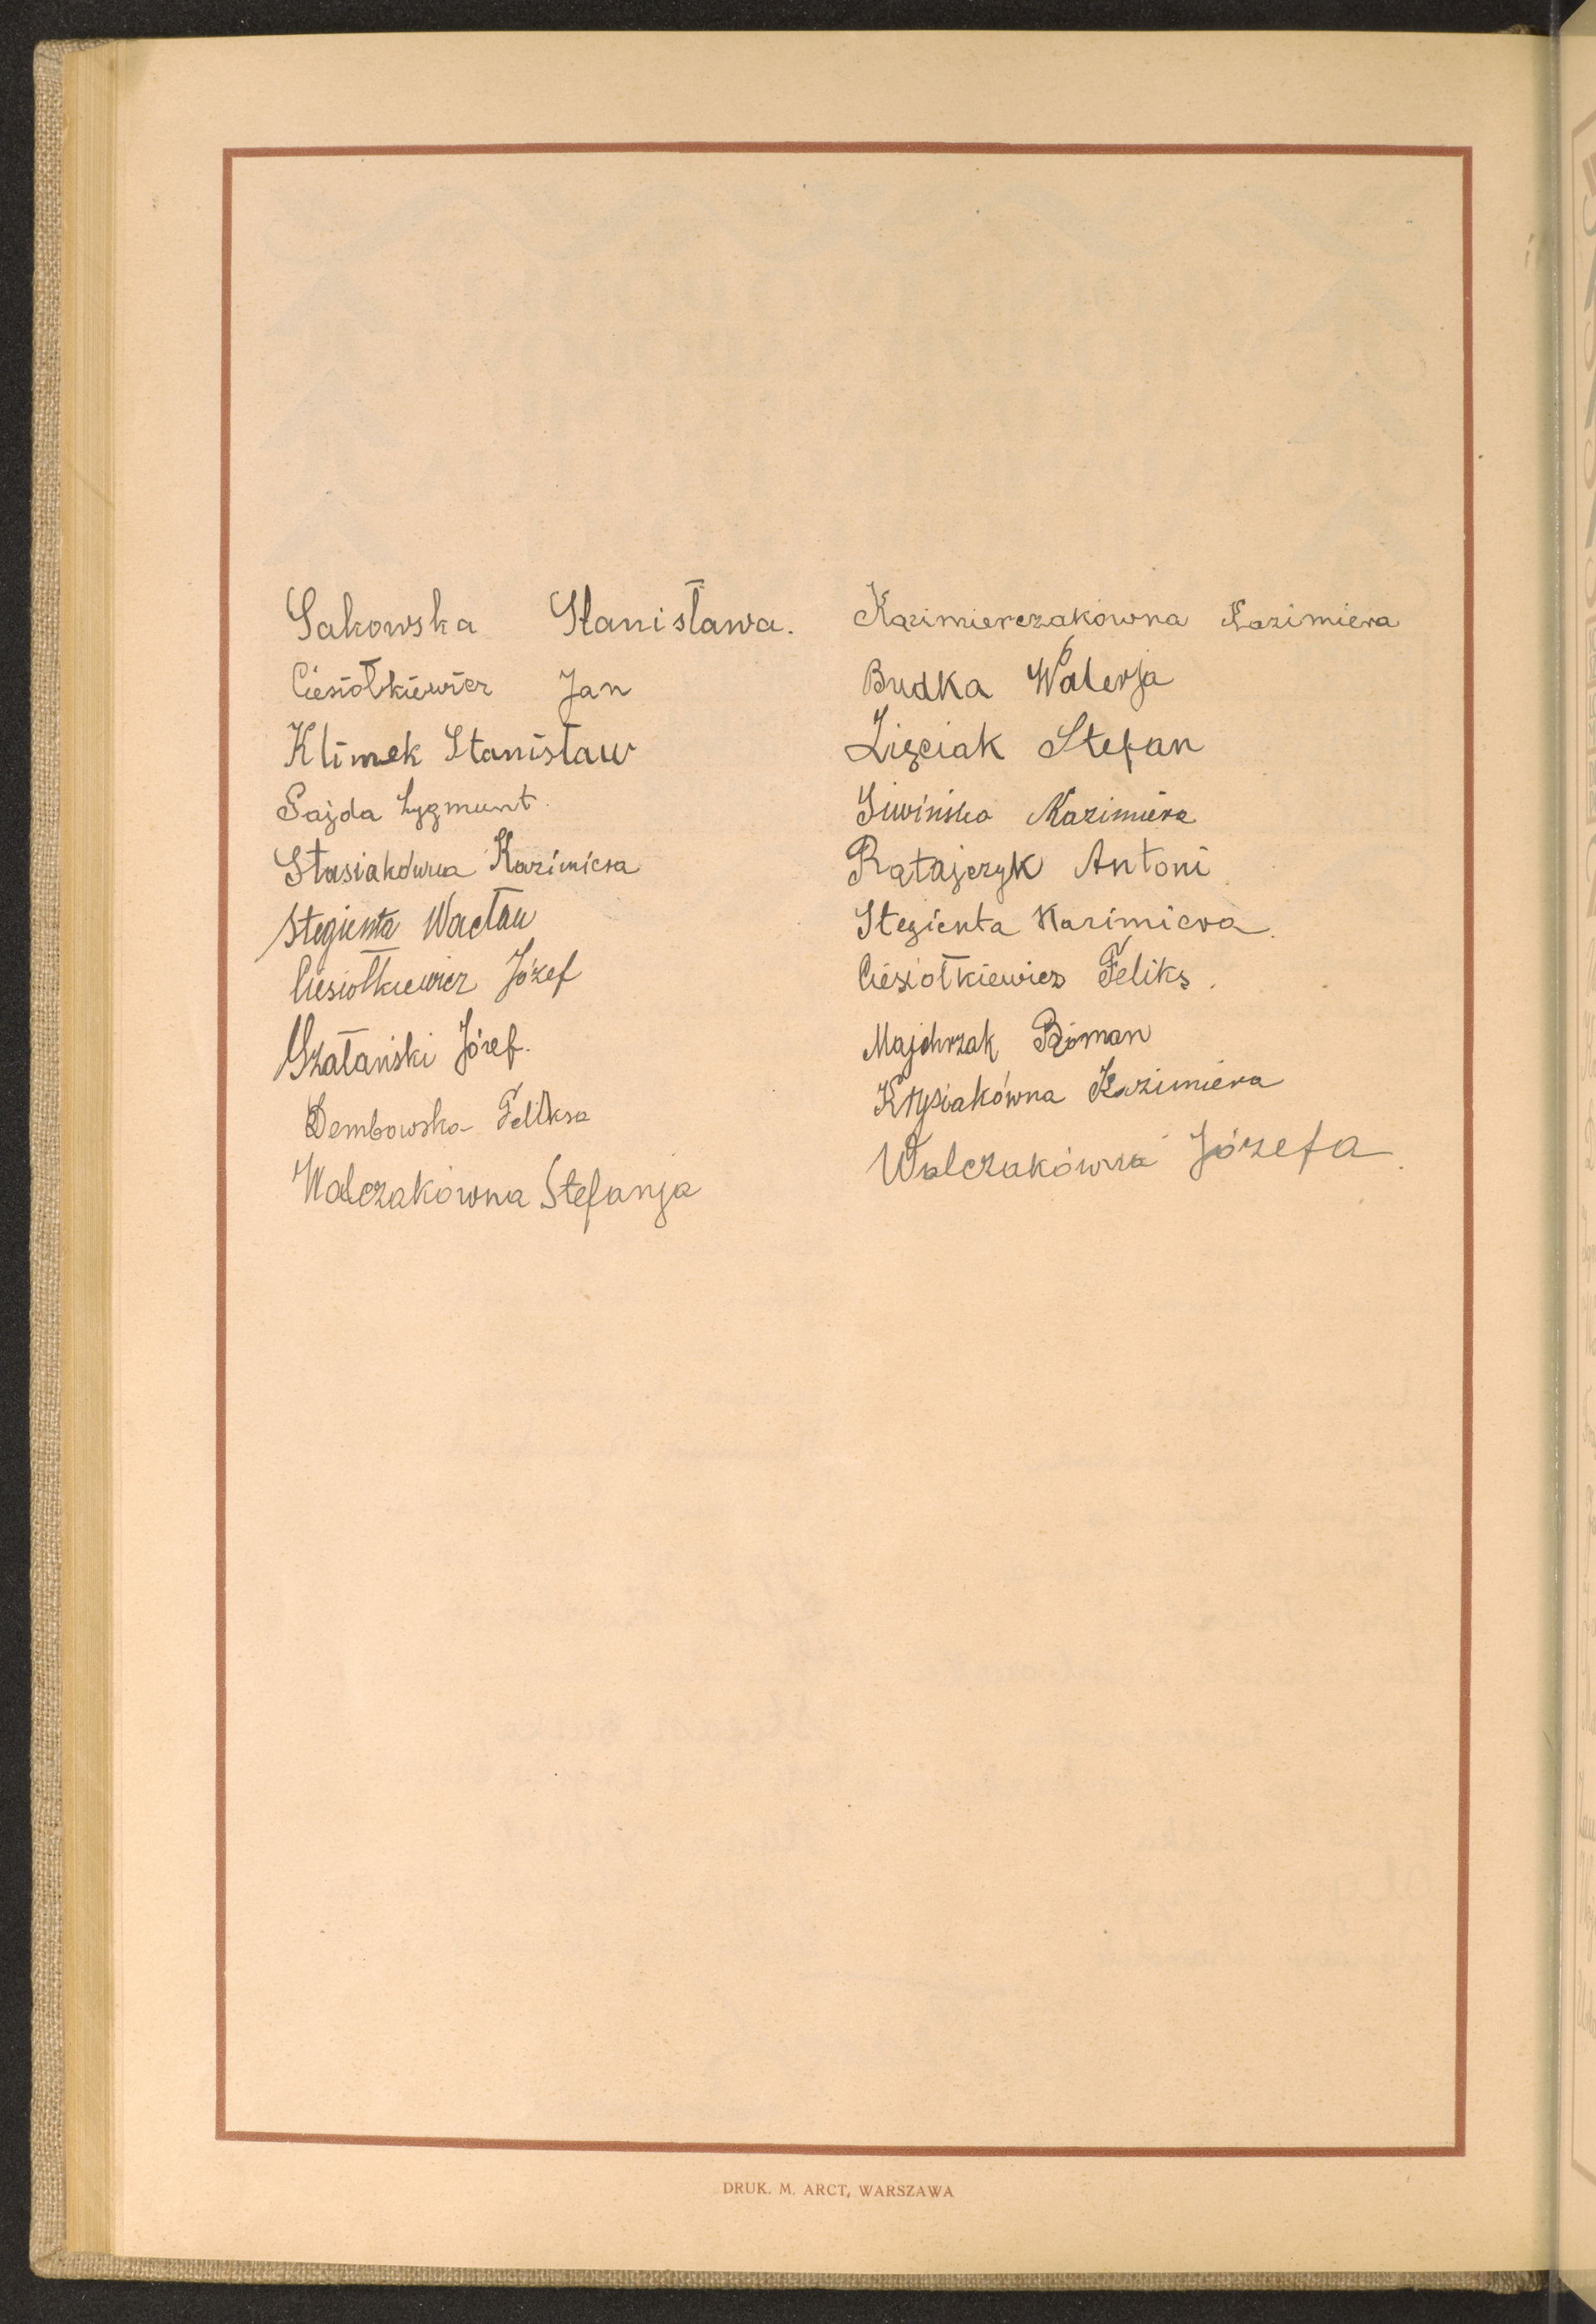 Sakowska Stanisława.
Ciesiołkiewicz Jan
Klimek Stanisław
Pajda Zygmunt.
Stasiakówna Kazimiera
Stegienta Wacław
Ciesiołkiewicz Józef
Szatański Józef.
Dembowska Feliksa
Walczakówna Stefanja
Kazimierczakówna Kazimiera
Budka Walerja
Zięciak Stefan
Siwińska Kazimiera
Ratajczyk Antoni
Stegienta Kazimiera.
Ciesiołkiewicz Feliks.
Majchrzak Roman
Krysiakówna Kazimiera
Walczakówna Józefa.
DRUK. M. ARCT, WARSZAWA